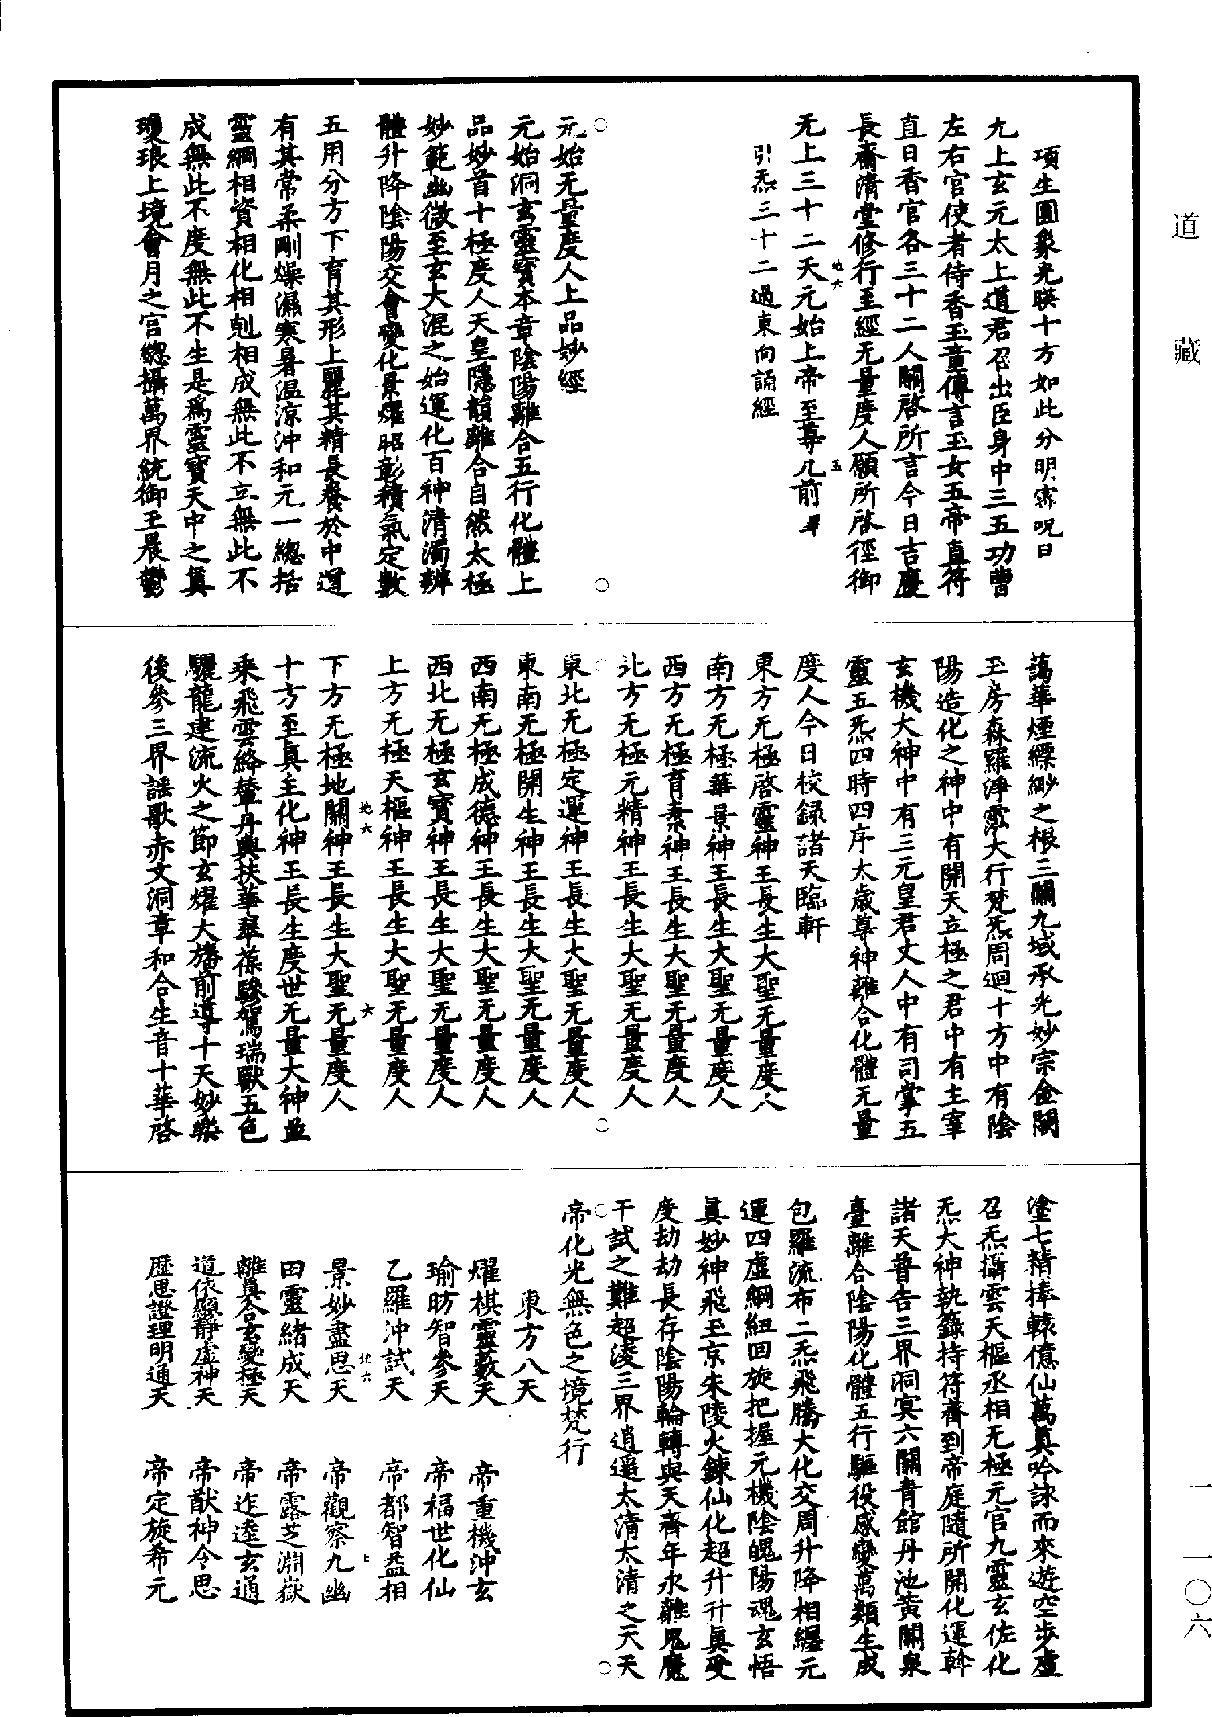 道藏
項生圓象光暎十方如此分明密呪曰
九上玄元太上道君召出臣身中三五功曹
左右官使者侍香玉童傳言玉女五帝直符
直日香官各三十二人關啓所言今日吉慶
長齋清堂修行至經无量度人願所啓徑御
无上三十二天元始上帝至尊几前畢
引炁三十二過東向誦經
元始无量度人上品妙經
元始洞玄靈寶本章陰陽離合五行化體上
品妙首十極度人天皇隱韻離合自然太極
妙範幽微至玄大混之始運化百神清濁辨
體升降陰陽交會變化景耀昭彰積氣定數
五用分方下育其形上麗其精長養於中運
有其常柔剛燥濕寒暑温涼沖和元一總括
靈綱相資相化相剋相成無此不立無此不
成無此不度無此不生是爲靈寶天中之真
瓊琅上境會月之宮總攝萬界統御王晨鬱
藹華煙縹緲之根三關九域承光妙宗金闕
玉房森羅淨霐大行梵炁周迴十方中有陰
陽造化之神中有開天立極之君中有主宰
玄機大神中有三元皇君丈人中有司掌五
靈五炁四時四序太歲尊神離合化體无量
度人今日校錄諸天臨軒
東方无極啓靈神王長生大聖无量度人
南方无極華景神王長生大聖无量度人
西方无極育素神王長生大聖无量度人
北方无極元精神王長生大聖无量度人
東北无極定運神王長生大聖无量度人
東南无極開生神王長生大聖无量度人
西南无極成德神王長生大聖无量度人
西北无極玄寶神王長生大聖无量度人
上方无極天樞神王長生大聖无量度人
下方无極地關神王長生大聖无量度人
十方至真主化神王長生度世无量大神並
乘飛雲絡輦丹輿扶華翠葆驂駕瑞獸五色
驪龍建流火之節玄耀大旛前導十天妙樂
後參三界謡歌赤文洞章和合生音十華啓
塗七精捧轅億仙萬真吟詠而來遊空步虛
召炁攝雲天樞丞相无極元官九靈玄佐化
炁大神執籙持符齎到帝庭隨所開化運斡
諸天普告三界洞冥六關青館丹池黄關泉
臺離合陰陽化體五行驅役感變萬類生成
包羅流布二炁飛騰大化交周升降相纒元
運四虛綱紐回旋把握元機陰魄陽魂玄悟
真妙神飛玉京朱陵火鍊仙化超升升真受
度劫劫長存陰陽輪轉與天齊年永離鬼魔
干試之難超淩三界逍遥太清太清之天天
帝化光無色之境梵行
東方八天
燿棋靈藪天 帝重機沖玄
瑜昉智參天 帝福世化仙
乙羅沖試天 帝都智益相
景妙盡思天 帝觀察九幽
田靈緒成天 帝露芝淵嶽
離真合玄變極天 帝迮逵玄通
道依顯靜虛神天 帝猷神令思
歷思證理明通天 帝定旋希元
一一〇六